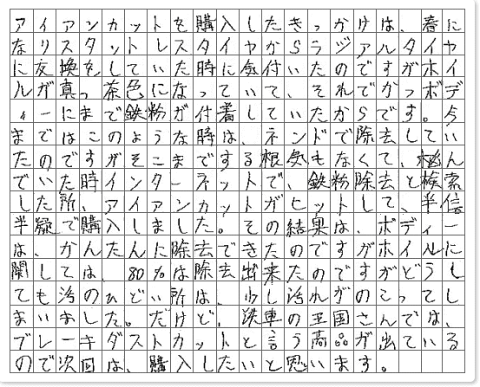 アイアンカットを購入したきっかけは、春に
なりスタットレスタイヤからラジアルタイヤ
に交換をしていた時に気付いたのですがホイ
ルが真っ茶色になっていて、それでかつボデ
ィーにまで鉄粉が付着していたからです。今
まではこのような時は、ネンドで除去してい
たのですがそこまでする根気もなくて、悩ん
でいた時インターネットで、鉄粉除去と検索
した所、アイアンカットがヒットして、半信
半疑で購入しました。その結果は、ボディー
は、かんたんに除去できたのですがホイルに
関しては、80%は除去出来たのですがどうし
ても汚のひどい所は、少し汚れがのこってし
まいました。だけど、洗車の王国さんでは、
ブレーキダストカットと言う商品が出ている
ので次回は、購入したいと思います。